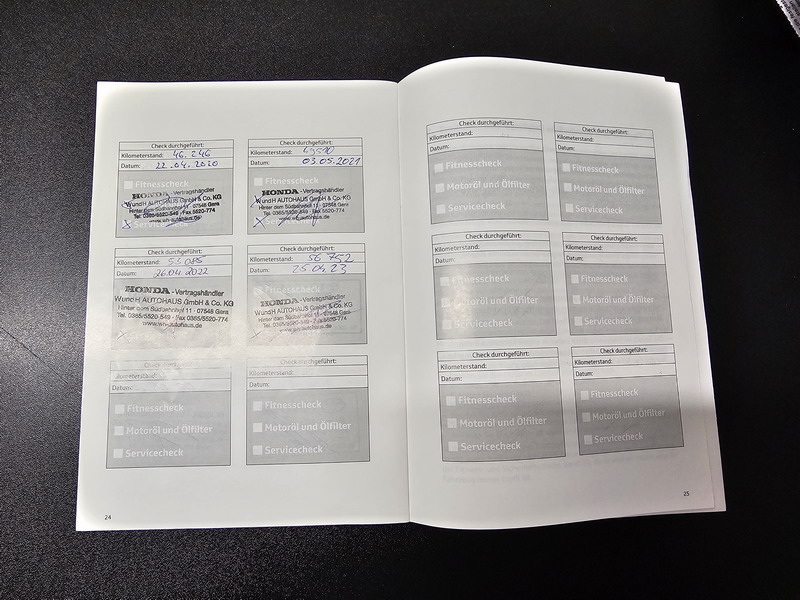 Check durchgeführt:
Kilometerstand: 46.246
Datum: 22.04.2020
Fitnesscheck
HONDA - Vertragshändler
WundH AUTOHAUS GmbH & Co. KG
Hinter dem Südbahnhof 11 · 07548 Gera
Tel. 0365/5520-549 · Fax 0365/5520-774
www.wh-autohaus.de
Servicecheck
Check durchgeführt:
Kilometerstand:
Datum: 03.05.2021
Fitnesscheck
HONDA - Vertragshändler
WundH AUTOHAUS GmbH & Co. KG
Hinter dem Südbahnhof 11 · 07548 Gera
Tel. 0365/5520-549 · Fax 0365/5520-774
www.wh-autohaus.de
Check durchgeführt:
Kilometerstand: 53 085
Datum: 26.04.2022
HONDA - Vertragshändler
WundH AUTOHAUS GmbH & Co. KG
Hinter dem Südbahnhof 11 · 07548 Gera
Tel. 0365/5520-549 · Fax 0365/5520-774
www.wh-autohaus.de
Check durchgeführt:
Kilometerstand: 56 752
Datum: 25.04.23
HONDA - Vertragshändler
WundH AUTOHAUS GmbH & Co. KG
Hinter dem Südbahnhof 11 · 07548 Gera
Tel. 0365/5520-549 · Fax 0365/5520-774
www.wh-autohaus.de
Kilometerstand:
Datum:
Fitnesscheck
Motoröl und Ölfilter
Servicecheck
Check durchgeführt:
Kilometerstand:
Datum:
Fitnesscheck
Motoröl und Ölfilter
Servicecheck
24
Check durchgeführt:
Kilometerstand:
Datum:
Fitnesscheck
Motoröl und Ölfilter
Servicecheck
Check durchgeführt:
Kilometerstand:
Datum:
Fitnesscheck
Motoröl und Ölfilter
Servicecheck
Check durchgeführt:
Kilometerstand:
Datum:
Fitnesscheck
Motoröl und Ölfilter
Servicecheck
Check durchgeführt:
Kilometerstand:
Datum:
Fitnesscheck
Motoröl und Ölfilter
Servicecheck
Check durchgeführt:
Kilometerstand:
Datum:
Fitnesscheck
Motoröl und Ölfilter
Servicecheck
Check durchgeführt:
Kilometerstand:
Datum:
Fitnesscheck
Motoröl und Ölfilter
Servicecheck
25